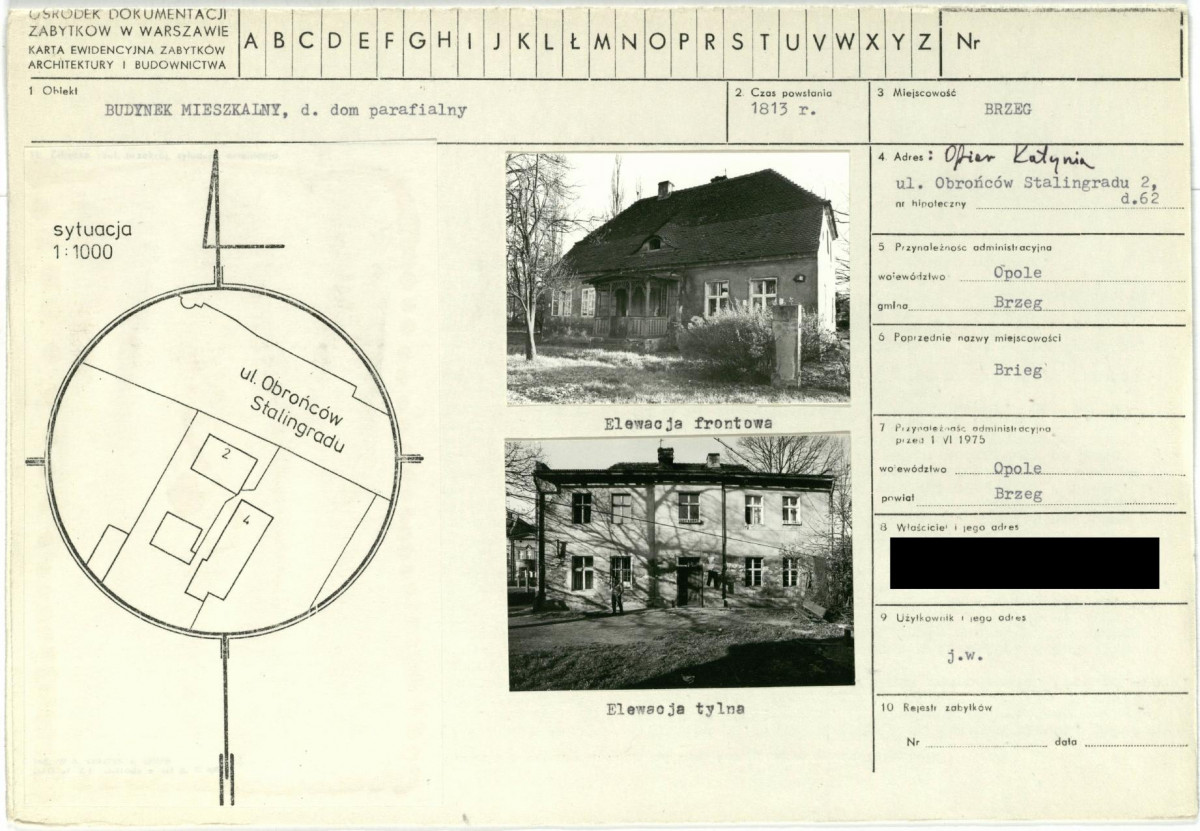 OŚRODEK DOKUMENTACJI
ZABYTKÓW W WARSZAWIE
KARTA EWIDENCYJNA ZABYTKÓW
ARCHITEKTURY I BUDOWNICTWA
A B C D E F G H I J K L Ł M N O P R S T U V W X Y Z
Nr
1 Obiekt
BUDYNEK MIESZKALNY, d. dom parafialny
2 Czas powstania
1813 r.
3 Miejscowość
BRZEG
sytuacja
1:1000
ul. Obrońców
Stalingradu
2
4
Elewacja frontowa
Elewacja tylna
4 Adres: Ofiar Katynia
ul. Obrońców Stalingradu 2,
d.62
nr hipoteczny
5 Przynależność administracyjna
województwo Opole
gmina Brzeg
6 Poprzednie nazwy miejscowości
Brieg
7 Przynależność administracyjna
przed 1 VI 1975
województwo Opole
powiat Brzeg
8 Właściciel i jego adres
9 Użytkownik i jego adres
j.w.
10 Rejestr zabytków
Nr data